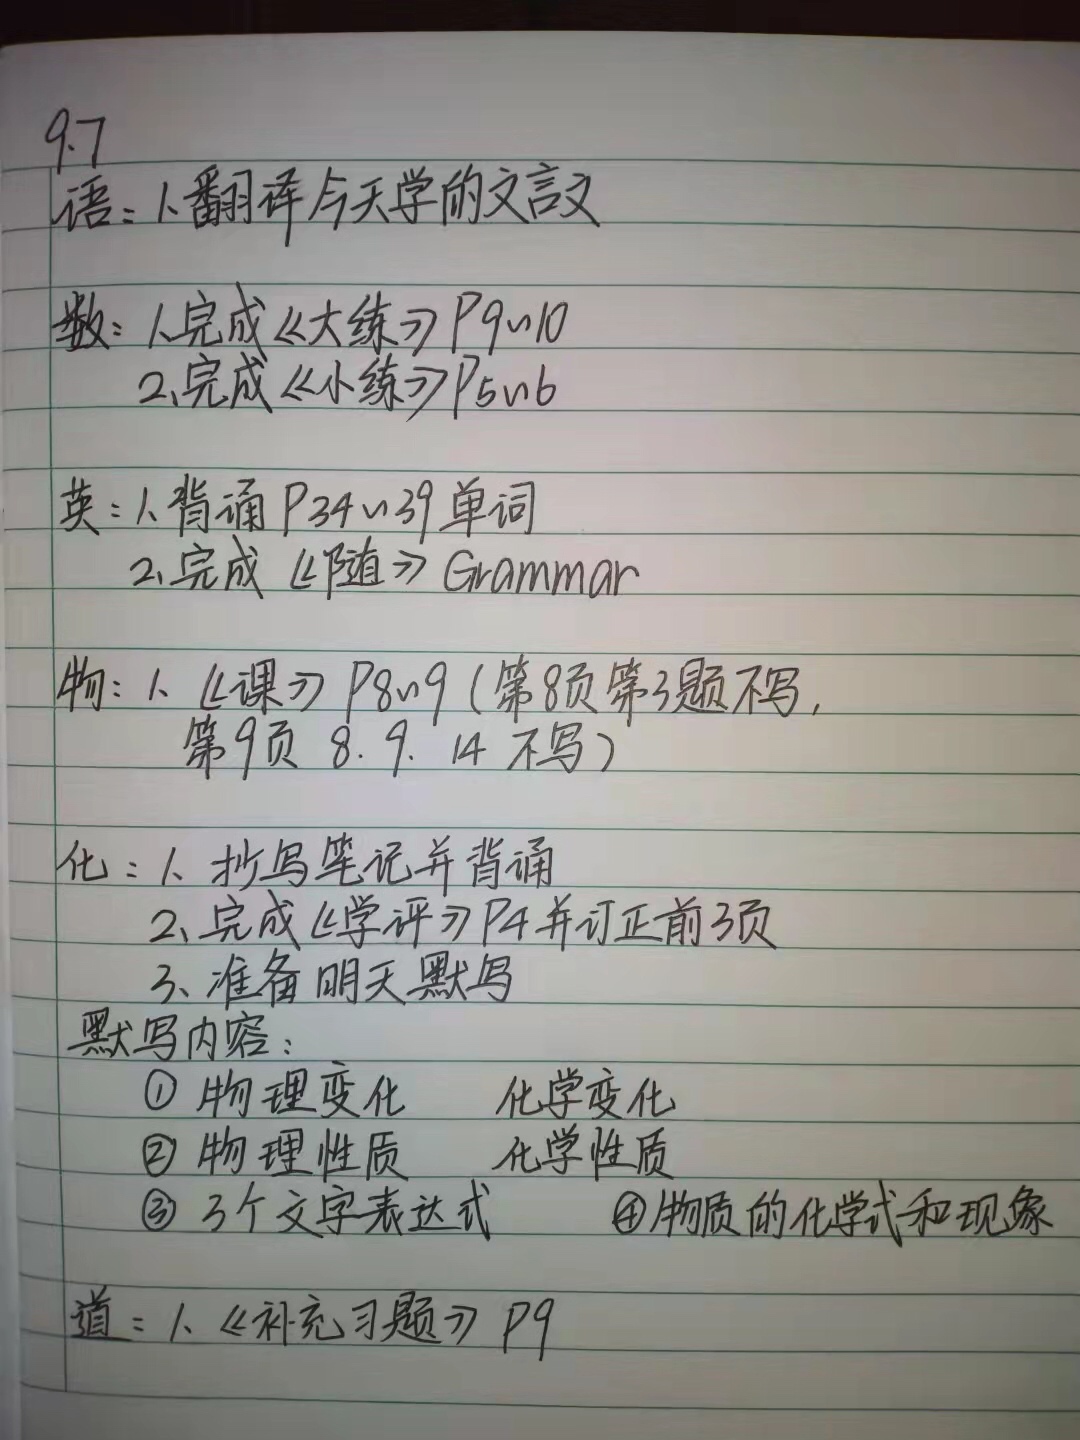 9.7
语：1、翻译今天学的文言文
数：1、完成《大练》P9~10
2、完成《小练》P5~6
英：1、背诵P34~39单词
2、完成《随》Grammar
物：1、《课》P8~9（第8页第3题不写，
第9页 8. 9. 14 不写）
化：1、抄写笔记并背诵
2、完成《学评》P4并订正前3页
3、准备明天默写
默写内容：
① 物理变化 化学变化
② 物理性质 化学性质
③ 3个文字表达式 ④物质的化学式和现象
道：1、《补充习题》P9